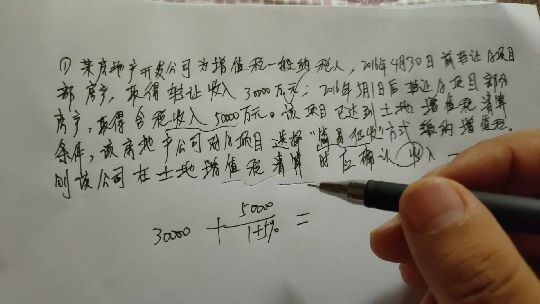 ① 某房地产开发公司为增值税一般纳税人，2016年4月30日前转让A项目
部分房产，取得转让收入30000万元；2016年5月1日后转让A项目部分
房产，取得含税收入50000万元。该项目已达到土地增值税清算
条件，该房地产公司对A项目选择“简易征收”方式缴纳增值税。
则该公司在土地增值税清算时应确认收入
30000 + 50000/1+5% =